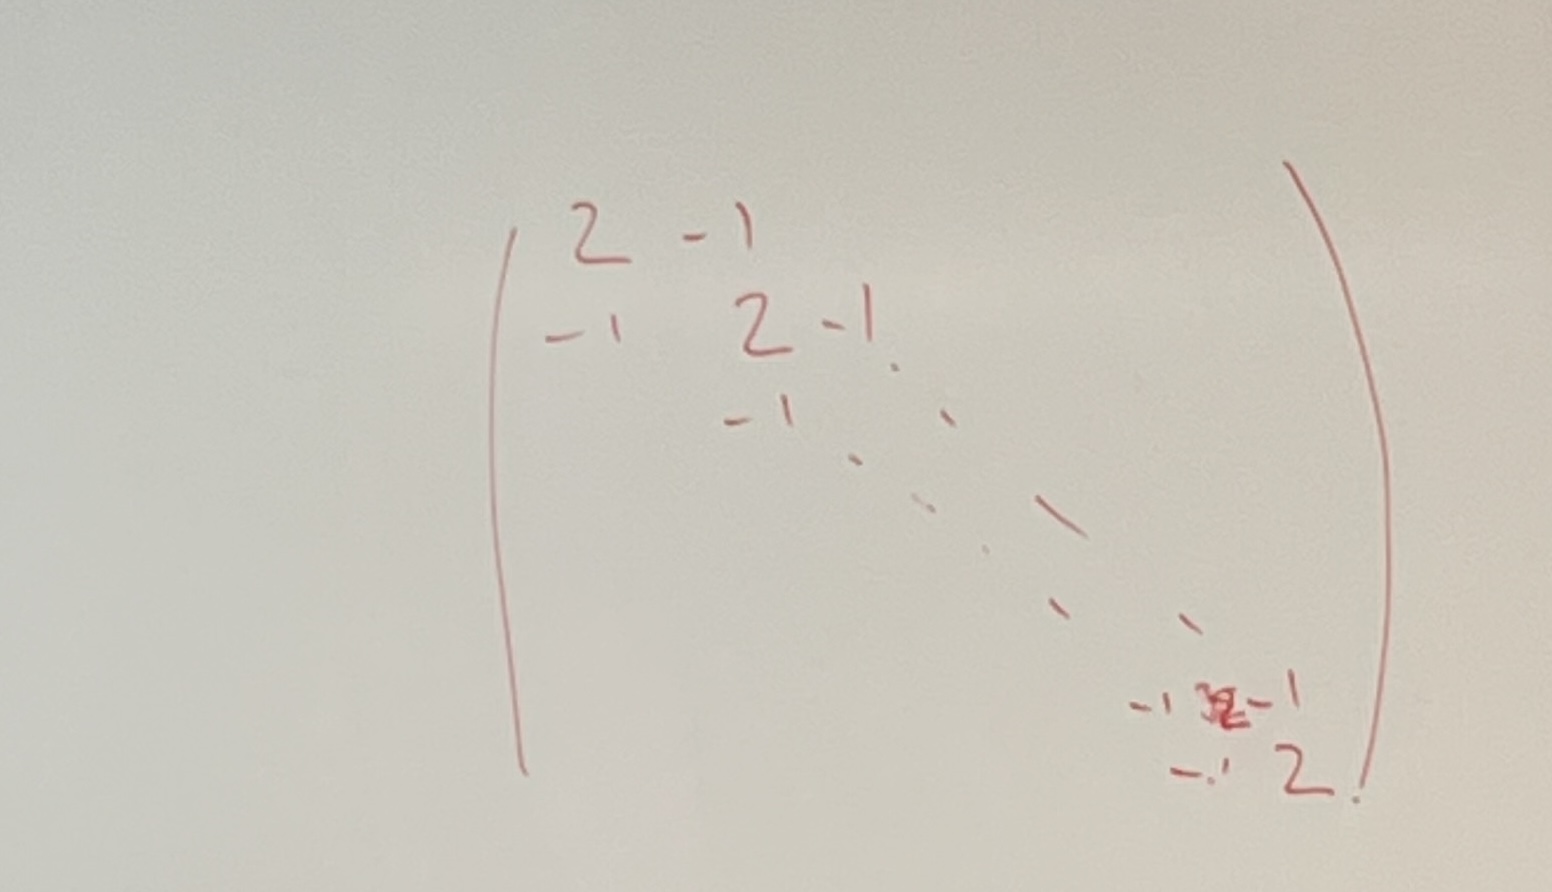 2 -1
-1 2 -1
-1
-1 2 -1
-1 2